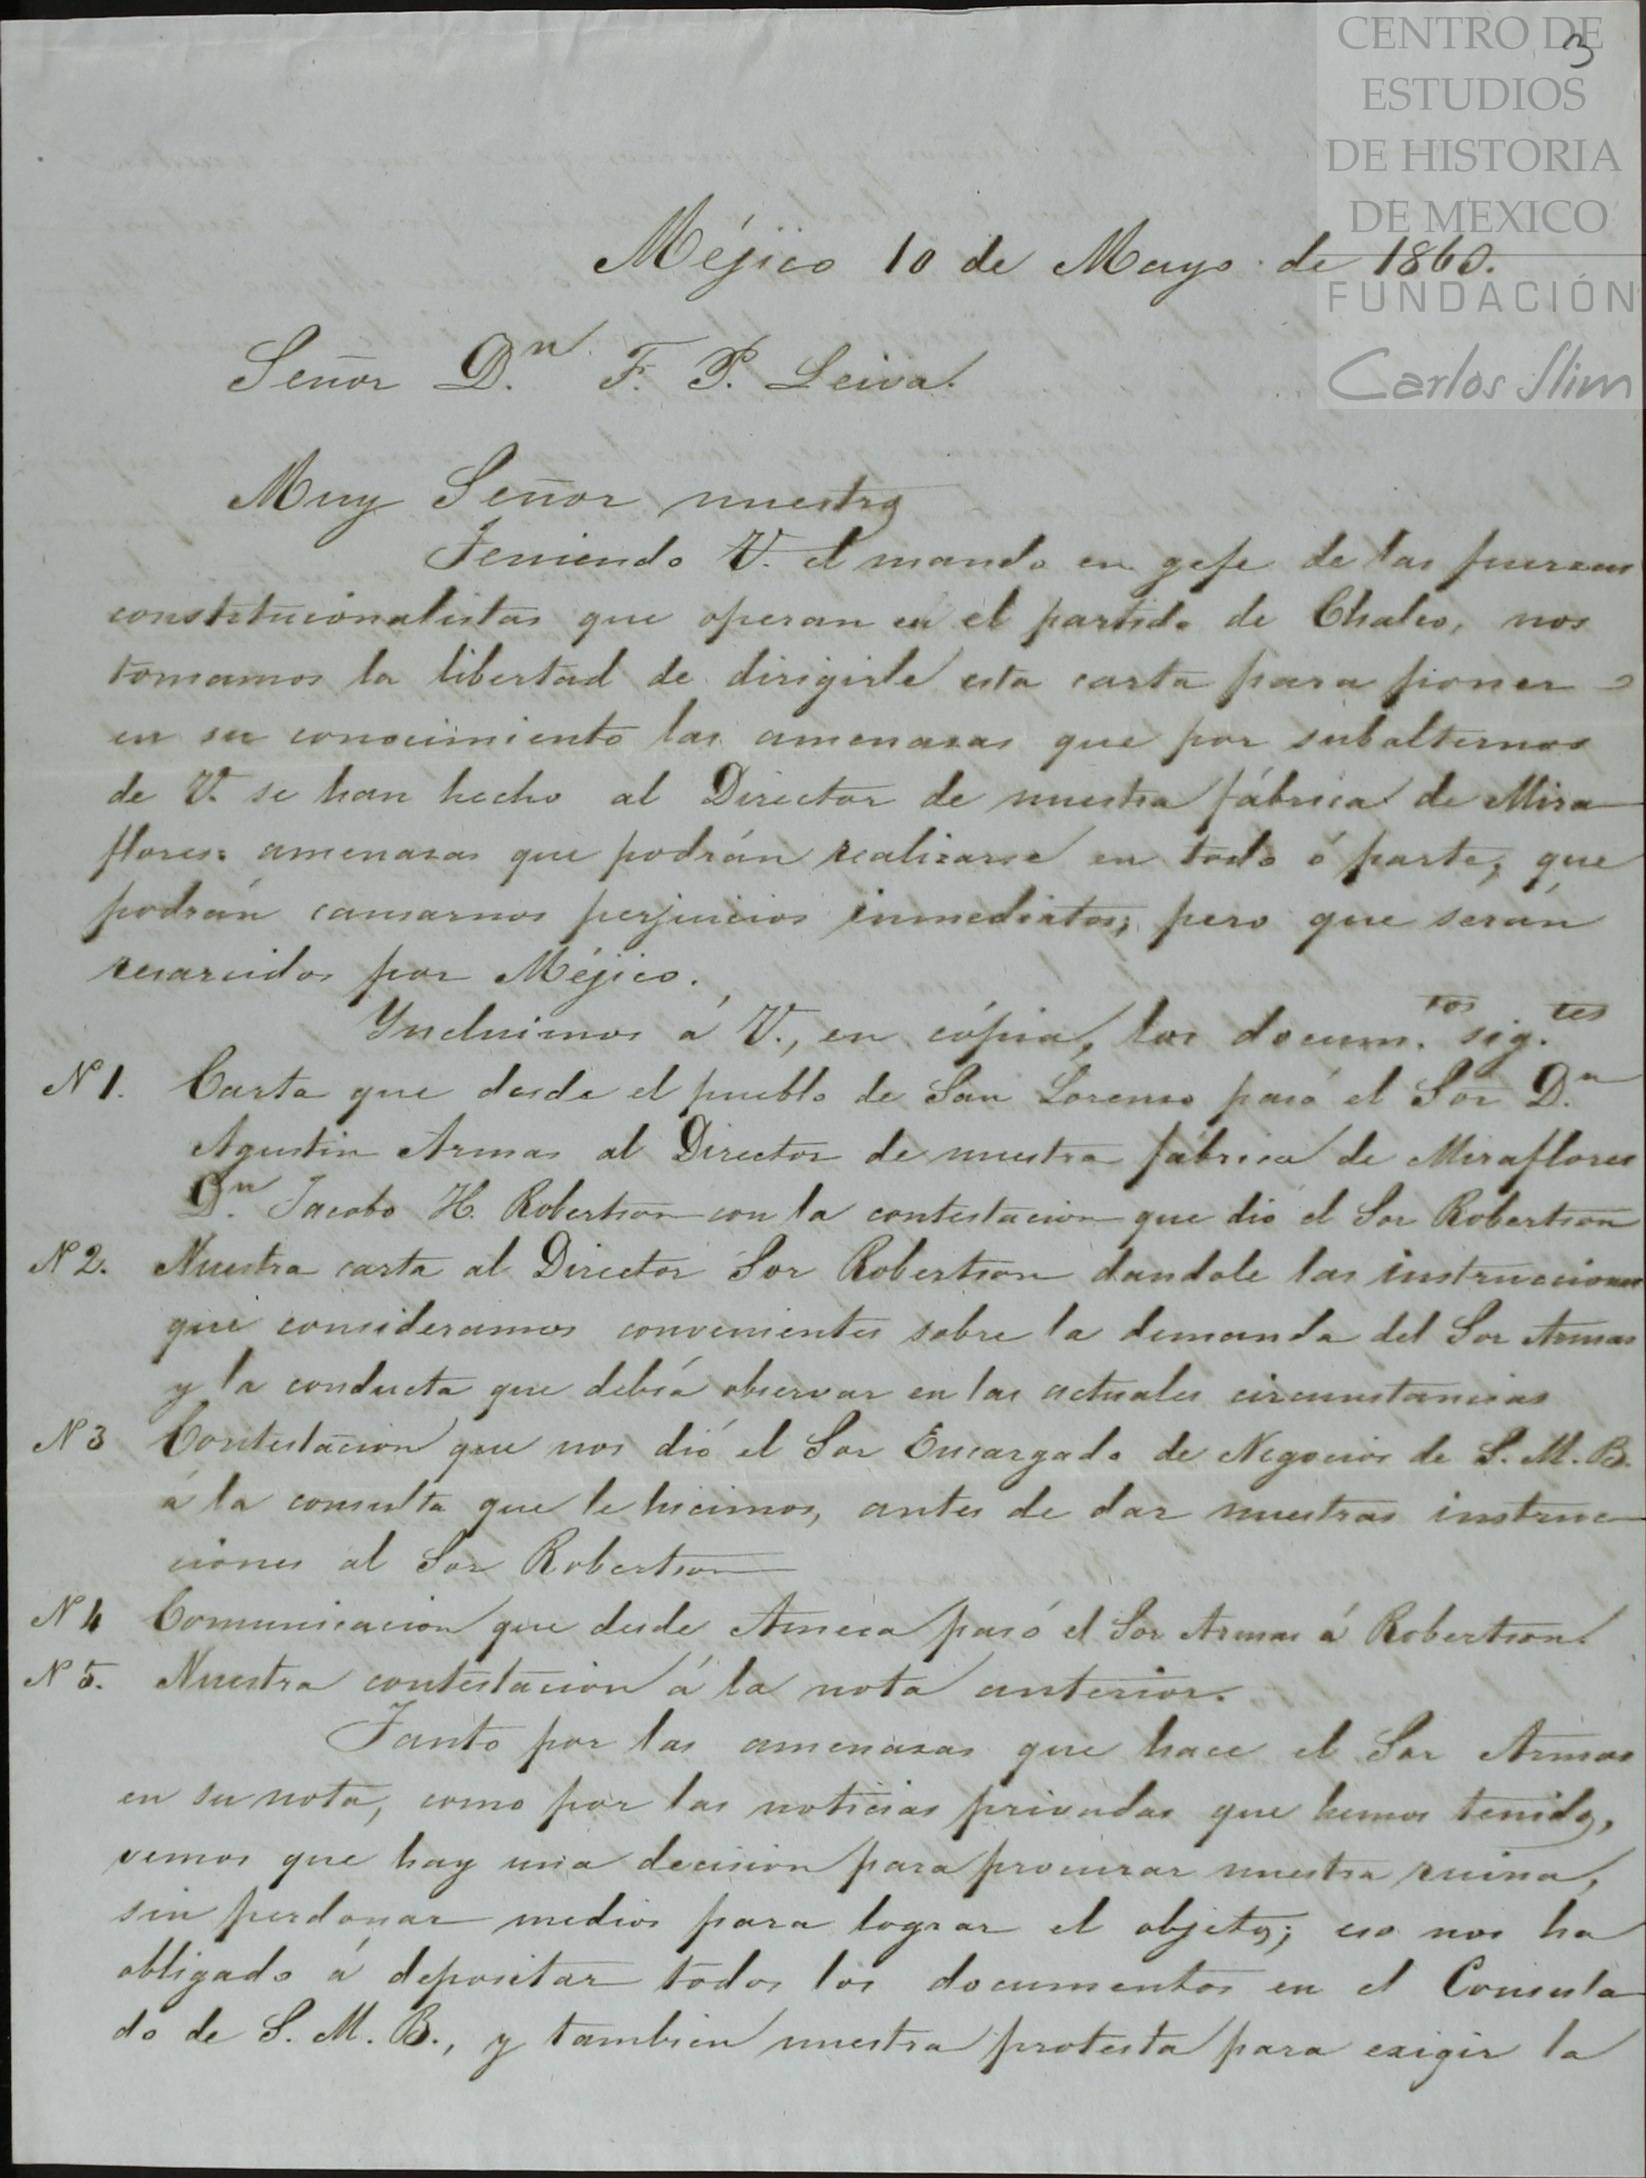 CENTRO DE
ESTUDIOS
DE HISTORIA
DE MEXICO
FUNDACIÓN
Carlos Slim
3
Méjico 10 de Mayo de 1860.
Señor D.n F. P. Leiva.
Muy Señor nuestro
Teniendo V. el mando en gefe de las fuerzas
constitucionalistas que operan en el partido de Chalco, nos
tomamos la libertad de dirigirle esta carta para poner
en su conocimiento las amenazas que por subalternos
de V. se han hecho al Director de nuestra fábrica de Mira
flores: amenazas que podrán realizarse en todo ó parte, que
podrán causarnos perjuicios inmediatos; pero que serán
resarcidos por Méjico.
Yncluimos á V., en cópia, los docum.tos sig.tes
N 1. Carta que desde el pueblo de San Lorenzo pasó el Sor D.n
Agustin Armas al Director de nuestra fábrica de Miraflores
D.n Jacobo H. Robertson con la contestacion que dió el Sor Robertson
N 2. Nuestra carta al Director Sor Robertson dandole las instrucciones
que consideramos convenientes sobre la demanda del Sor Armas
y la conducta que debía observar en las actuales circunstancias
N 3 Contestacion que nos dió el Sor Encargado de Negocios de S. M. B.
á la consulta que le hicimos, antes de dar nuestras instruc
ciones al Sor Robertson
N 4 Comunicacion que desde Ameca pasó el Sor Armas á Robertson.
N 5. Nuestra contestacion á la nota anterior.
Tanto por las amenazas que hace el Sor Armas
en su nota, como por las noticias privadas que hemos tenido,
vemos que hay una decision para procurar nuestra ruina,
sin perdonar medios para lograr el objeto; eso nos ha
obligado á depositar todos los documentos en el Consula
do de S. M. B., y tambien nuestra protesta para exigir la